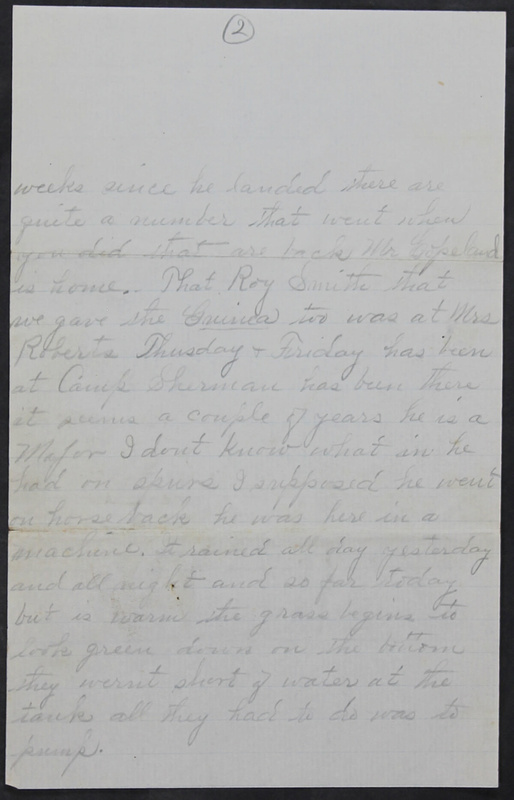 2
weeks since he landed there are
quite a number that went when
you did that are back Mr Copeland
is home. That Roy Smith that
we gave the Guinea too was at Mrs
Roberts Thusday + Friday has been
at Camp Sherman has been there
it seems a couple of years he is a
Major I dont know what in he
had on spurs I supposed he went
on horse back he was here in a
machine. It rained all day yesterday
and all night and so far today
but is warm the grass begins to
look green down on the bottom
they wernt short of water at the
tank all they had to do was to
pump.